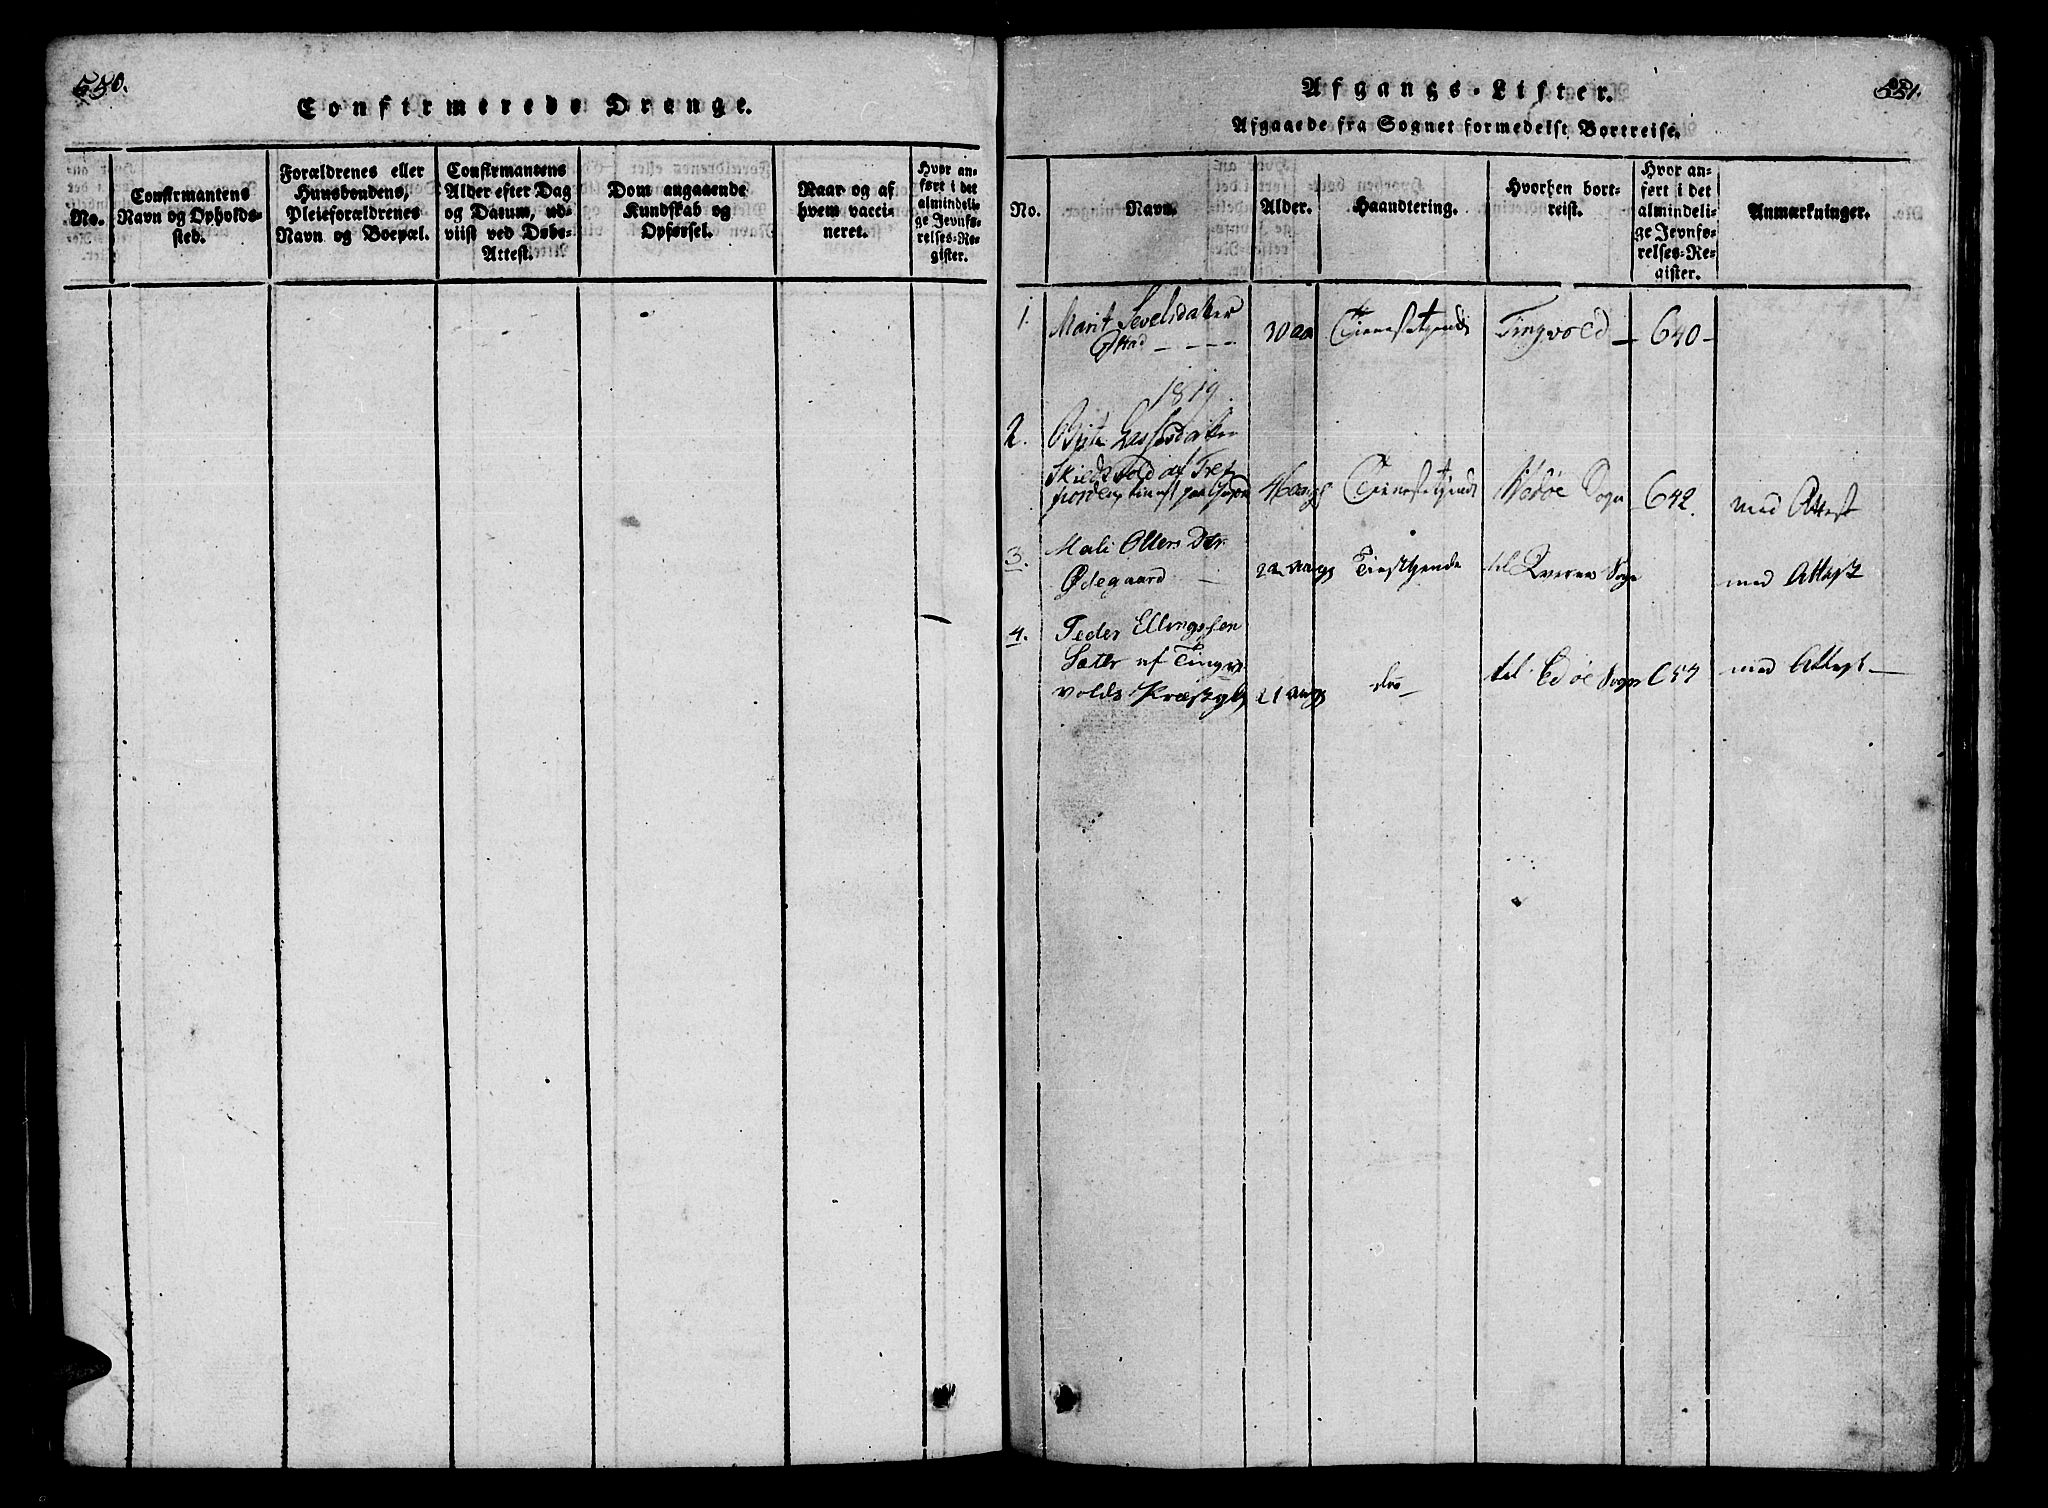 550.
Confirmerede Drenge.
No.
Confirmantens
Navn og Opholds-
sted.
Forældrenes eller
Huusbondens,
Pleieforældrenes
Navn og Boepæl.
Confirmantens
Alder efter Dag
og Datum, ud-
viist ved Døbe-
Attest.
Dom angaaende
Kundskab og
Opførsel.
Naar og af
hvem vacci-
neret.
Hvor an-
ført i det
almindeli-
ge Jevnfø-
relses-Re-
gister.
551.
Afgangs-Lister.
Afgaaede fra Sognet formedelst Bortreise.
No.
Navn.
Alder.
Haandtering.
Hvorhen bort-
reist.
Hvor an-
ført i det
almindeli-
ge Jevnfø-
relses-Re-
gister.
Anmærkninger.
1. Marit Sevelsdatter 30 aa Tienestetjende Tingvold - 640 -
1819.
2.
af
46 aags Tienestetjende Sogn 642. med Attest
3. Mali Ollers Dtr
Ødegaard 22 aags Tienstjende til Qverns Sogn med Attest
4. Peder Ellingssøn
Sæter af Ting-
volds Præstgl 21 aags do til Edøe Sogn 657 med Attest